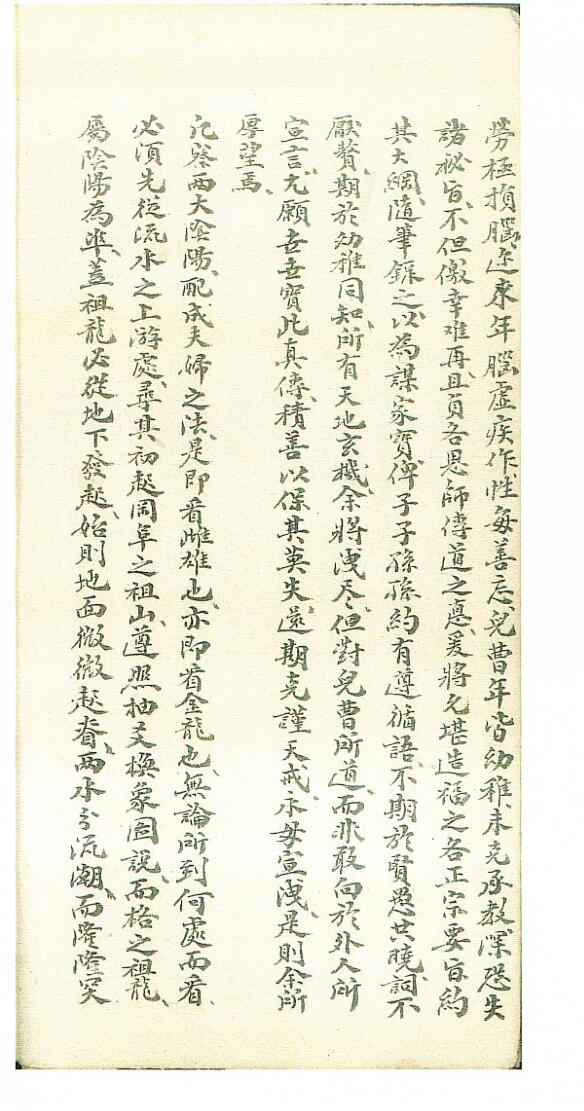 勞極損腦、近來年腦虛疾作、性每善忘、兒曹年皆幼稚、未克承教、深恐失
諸秘旨、不但儌幸难再、且負各恩師傳道之意、爰將尤堪造福之各正宗要旨、約
其大綱、随筆錄之、以為謀家寶、俾子子孫孫、約有遵循、語不期於賢愚共曉、詞不
厭贅、期於幼稚同知、所有天地玄機、余將洩尽、但對兒曹所道、而非敢向於外人所
宣言、尤願世世寶此真傳、積善以保其莫失、還期克謹天戒、永毋宣洩、是則余所
厚望焉、
凡察两大陰陽、配成夫婦之法、是即看雌雄也、亦即看金龍也、無論所到何處而看、
必須先從流水之上游處、尋其初起岡阜之祖山、遵照抽爻換象圖說、而格之祖龍、
屬陰陽為準、蓋祖龍必從地下發起、始則地面微微起脊、两水分流潮、而隆隆突